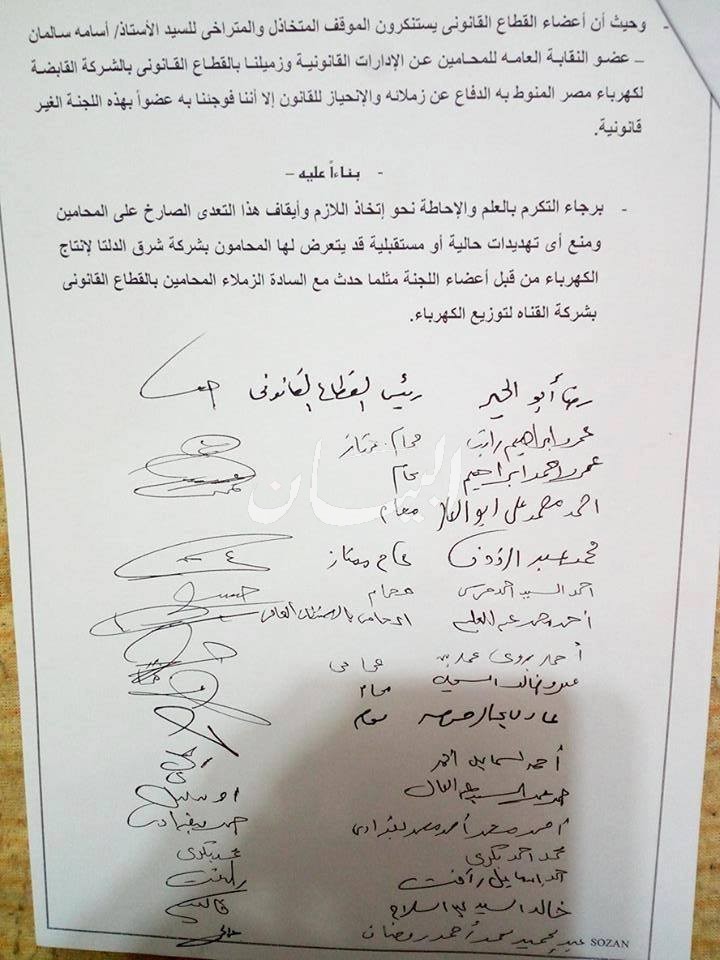 - وحيث أن أعضاء القطاع القانونى يستنكرون الموقف المتخاذل والمتراخى للسيد الأستاذ/ أسامه سالمان
– عضو النقابة العامه للمحامين عن الإدارات القانونية وزميلنا بالقطاع القانونى بالشركة القابضة
لكهرباء مصر المنوط به الدفاع عن زملائه والإنحياز للقانون إلا أننا فوجئنا به عضواً بهذه اللجنة الغير
قانونية.
- بناءاً عليه –
- برجاء التكرم بالعلم والإحاطة نحو إتخاذ اللازم وأيقاف هذا التعدى الصارخ على المحامين
ومنع أى تهديدات حالية أو مستقبلية قد يتعرض لها المحامون بشركة شرق الدلتا لإنتاج
الكهرباء من قبل أعضاء اللجنة مثلما حدث مع السادة الزملاء المحامين بالقطاع القانونى
بشركة القناه لتوزيع الكهرباء.
رضا أبو الخير رئيس القطاع القانونى
عمرو ابراهيم محام ممتاز
عمرو احمد ابراهيم محام
البيان
احمد محمد على ابو محام
محمد عبد الرؤوف محام ممتاز
احمد السيد احمد محام
أحمد محمد
أحمد بدوى محامى
عمرو خالد السيد محام
محام
أحمد اسماعيل احمد
السيد
أحمد محمد أحمد محمد
محمد احمد بكرى محمد بكرى
احمد اسماعيل رأفت رأفت
خالد السيد عبد السلام
عبد الحميد محمد أحمد رمضان
SOZAN